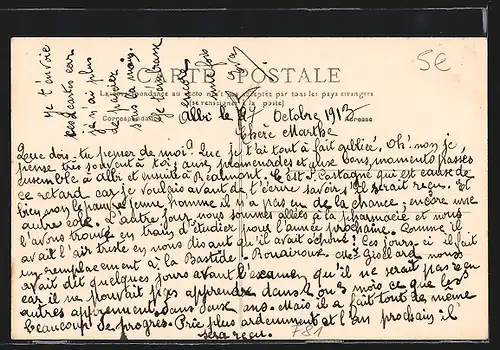 je t'envoie
des cartes car
je n'ai plus
de papier
sous la main.
Je t'embrasse
encore
une fois
CARTE POSTALE
La correspondance au recto n'est pas acceptée par tous les pays étrangers
(se renseigner à la poste)
Correspondance
Adresse
5€
Albi le 27 Octobre 1912
Chère Marthe
Que dois-tu penser de moi? Que je t'ai tout à fait oubliée. Oh! non je
pense très souvent à toi; aux promenades et aux bons moments passés
ensemble à Albi et ensuite à Réalmont. C'est P. Castagné qui est cause de
ce retard car je voulais avant de t'écrire savoir s'il serait reçu. Et
bien non le pauvre jeune homme il n'a pas eu de la chance; encore une
autre colle. L'autre jour nous sommes allées à la pharmacie et nous
l'avons trouvé en train d'étudier pour l'année prochaine. Comme il
avait l'air triste en nous disant qu'il avait échoué! Ces jours-ci il fait
un remplacement à la Bastide-Rouairoux. Mr nous
avait dit quelques jours avant l'examen qu'il ne serait pas reçu
car il ne pouvait pas apprendre dans 2 ou 3 mois ce que les
autres apprennent dans deux ans. Mais il a fait tout de même
beaucoup de progrès. Prie plus ardemment et l'an prochain il
sera reçu.